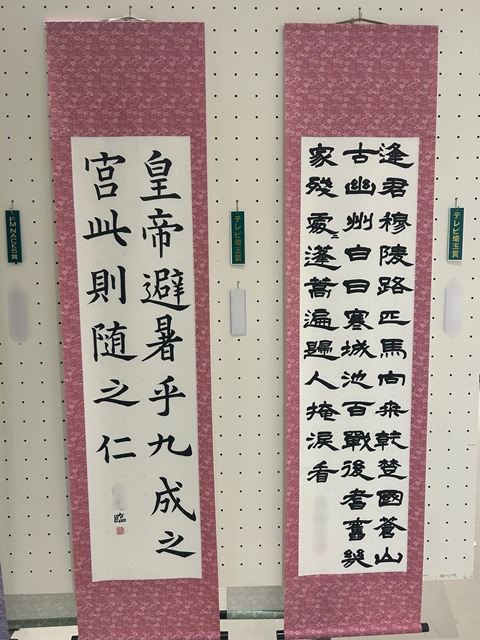 逢君穆陵路匹馬向桑乾楚國蒼山
古幽州白日寒城池百戰後耆舊幾
家殘處々蓬蒿遍歸人掩淚看
皇帝避暑乎九成之
宮此則随之仁
臨
テレビ埼玉賞
テレビ埼玉賞
FM NACK5賞